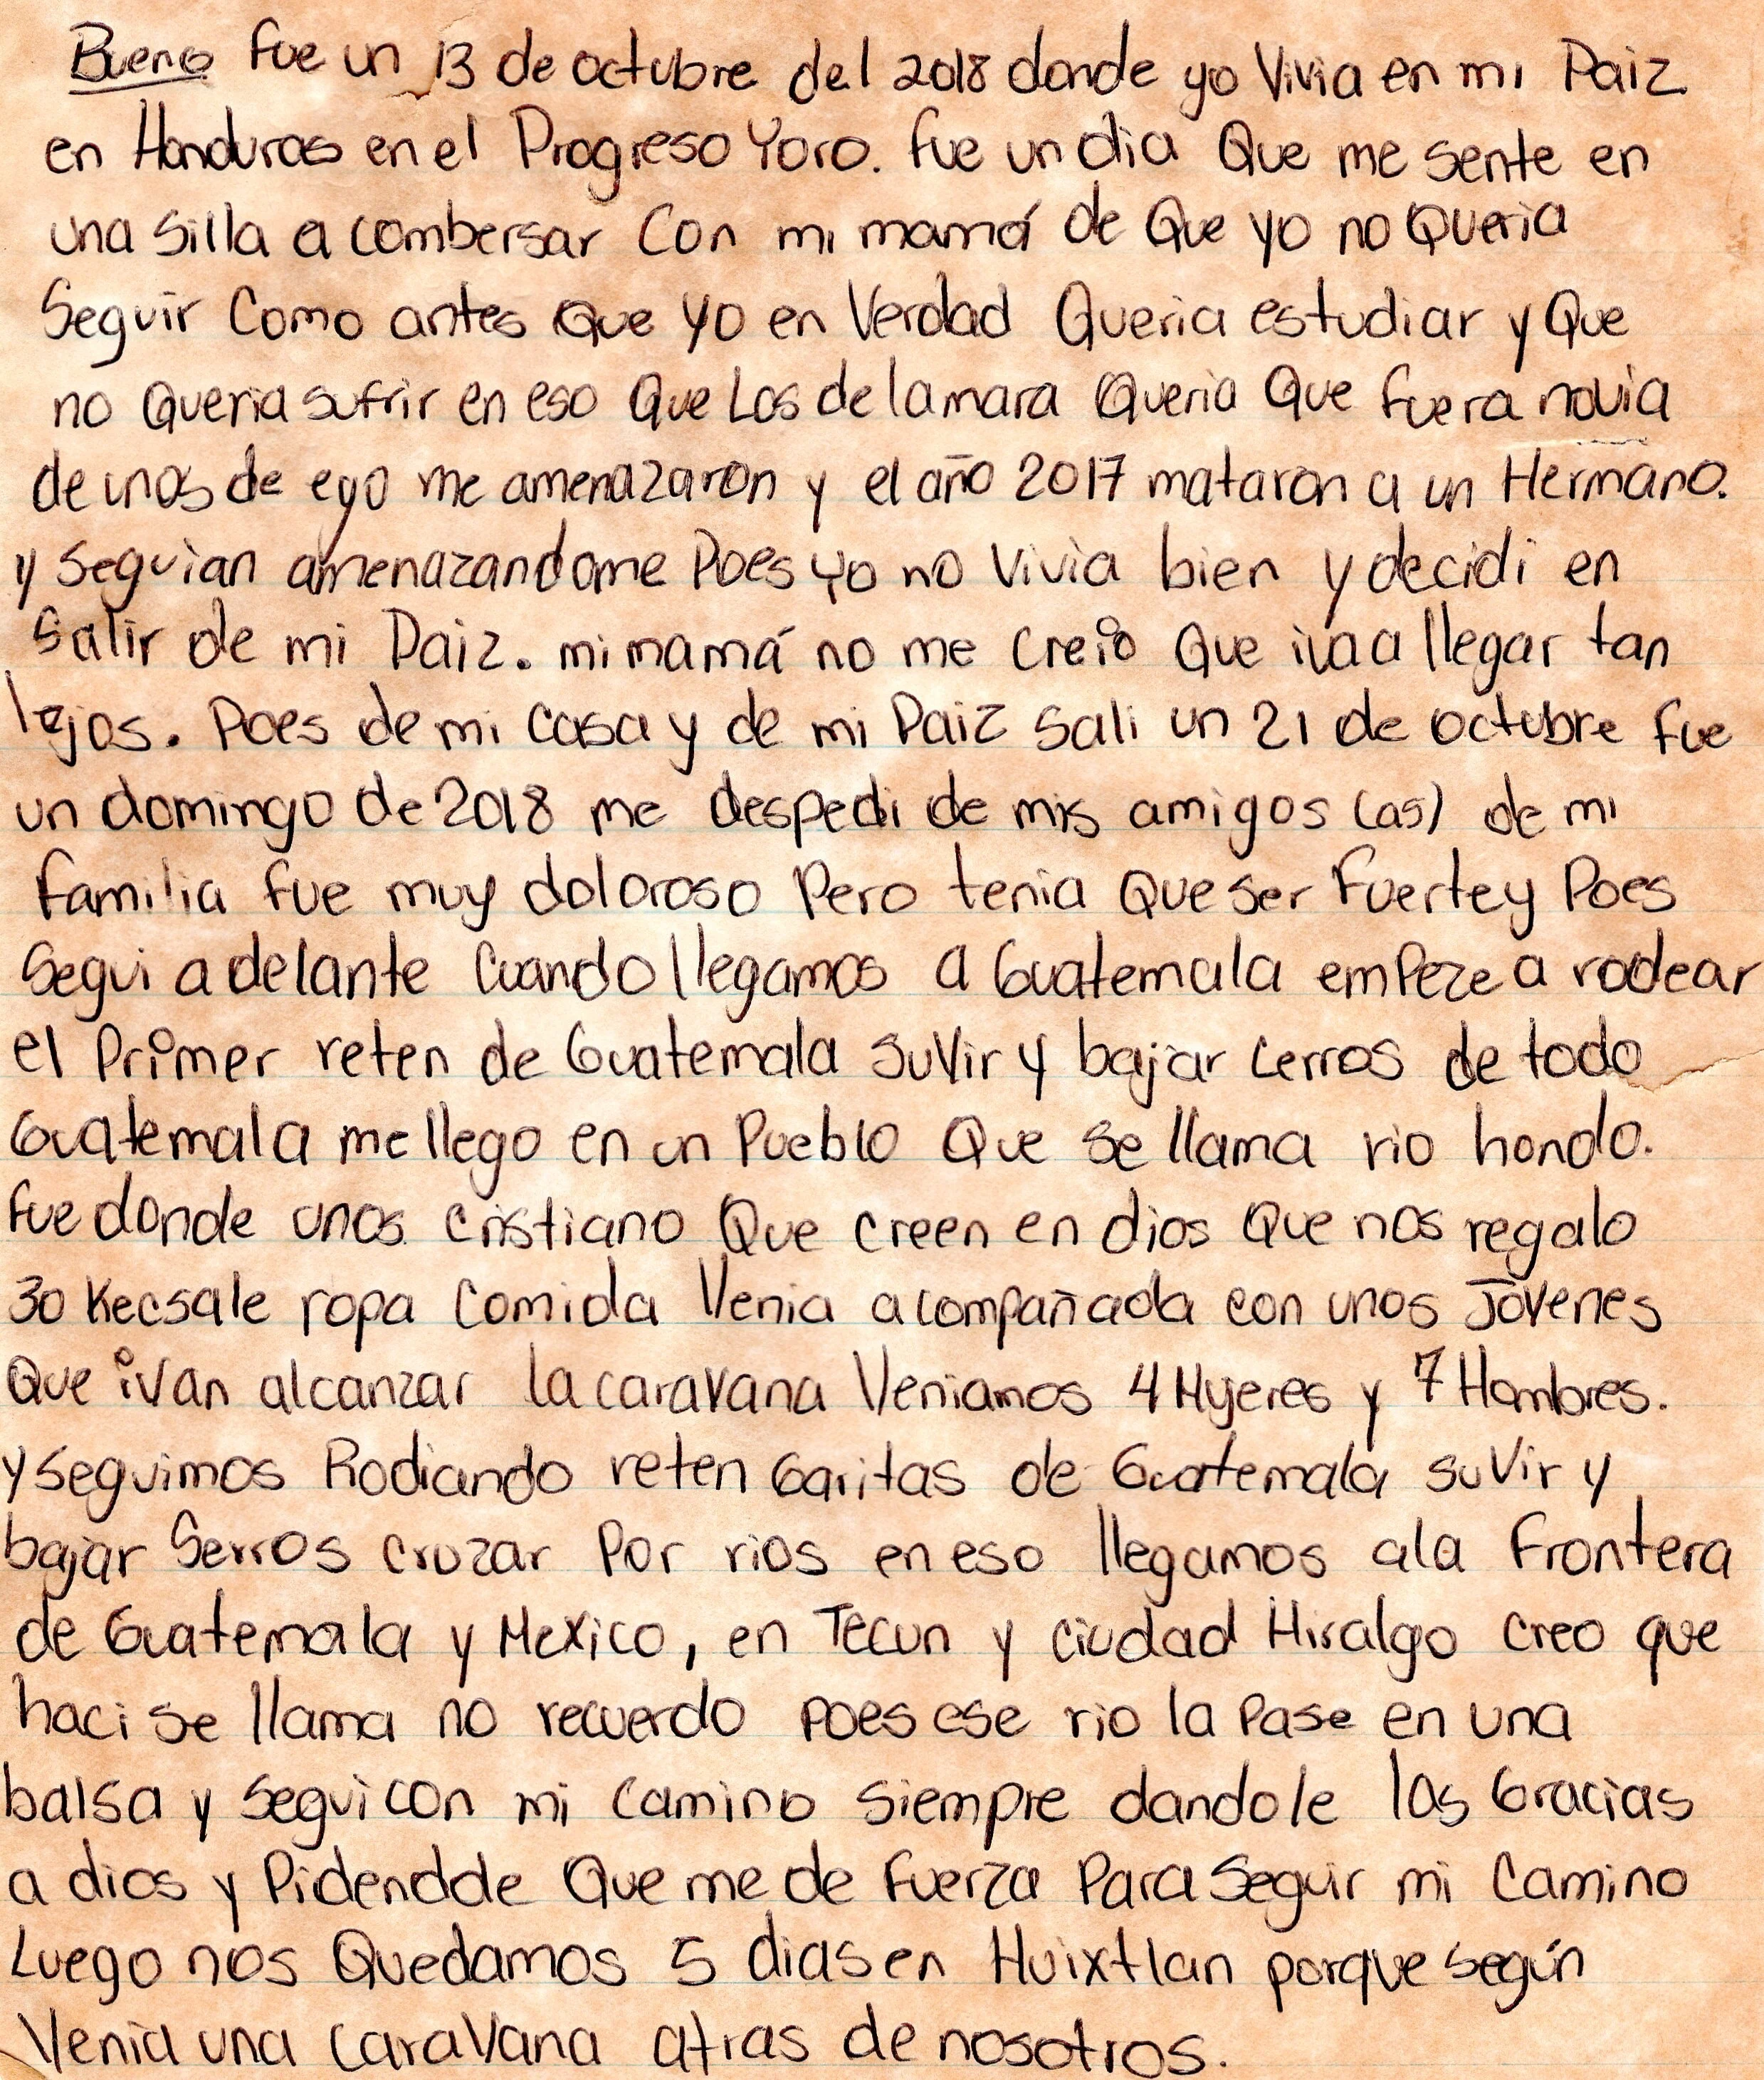 Bueno fue un 13 de octubre del 2018 donde yo Vivia en mi Paiz
en Honduras en el Progreso Yoro. fue un dia Que me sente en
una silla a combersar Con mi mamá de Que yo no Queria
Seguir Como antes Que yo en Verdad Queria estudiar y Que
no Queria sufrir en eso Que Los de la mara Queria Que fuera novia
de unos de eyo me amenazaron y el año 2017 mataron a un Hermano.
y seguian amenazandome Poes yo no Vivia bien y decidi en
Salir de mi Paiz. mi mamá no me creio Que iva a llegar tan
lejos. Poes de mi casa y de mi Paiz Sali un 21 de octubre fue
un domingo de 2018 me despedi de mis amigos (as) de mi
familia fue muy doloroso Pero tenia Que ser Fuerte y Poes
Segui adelante Cuando llegamos a Guatemala empeze a rodear
el Primer reten de Guatemala suvir y bajar cerros de todo
Guatemala me llego en un Pueblo Que se llama rio hondo.
fue donde unos cristiano Que creen en dios Que nos regalo
30 Kecsale ropa Comida Venia acompañada con unos Jovenes
Que ivan alcanzar la caravana Veniamos 4 Mujeres y 7 Hombres.
y seguimos Rodiando reten Garitas de Guatemala suvir y
bajar Serros cruzar Por rios en eso llegamos ala Frontera
de Guatemala y Mexico, en Tecun y ciudad Hisalgo creo que
haci se llama no recuerdo poes ese rio la Pase en una
balsa y segui con mi camino siempre dandole las Gracias
a dios y Pidendole Que me de fuerza Para Seguir mi Camino
Luego nos Quedamos 5 dias en Huixtlan porque según
Venia una caravana atras de nosotros.